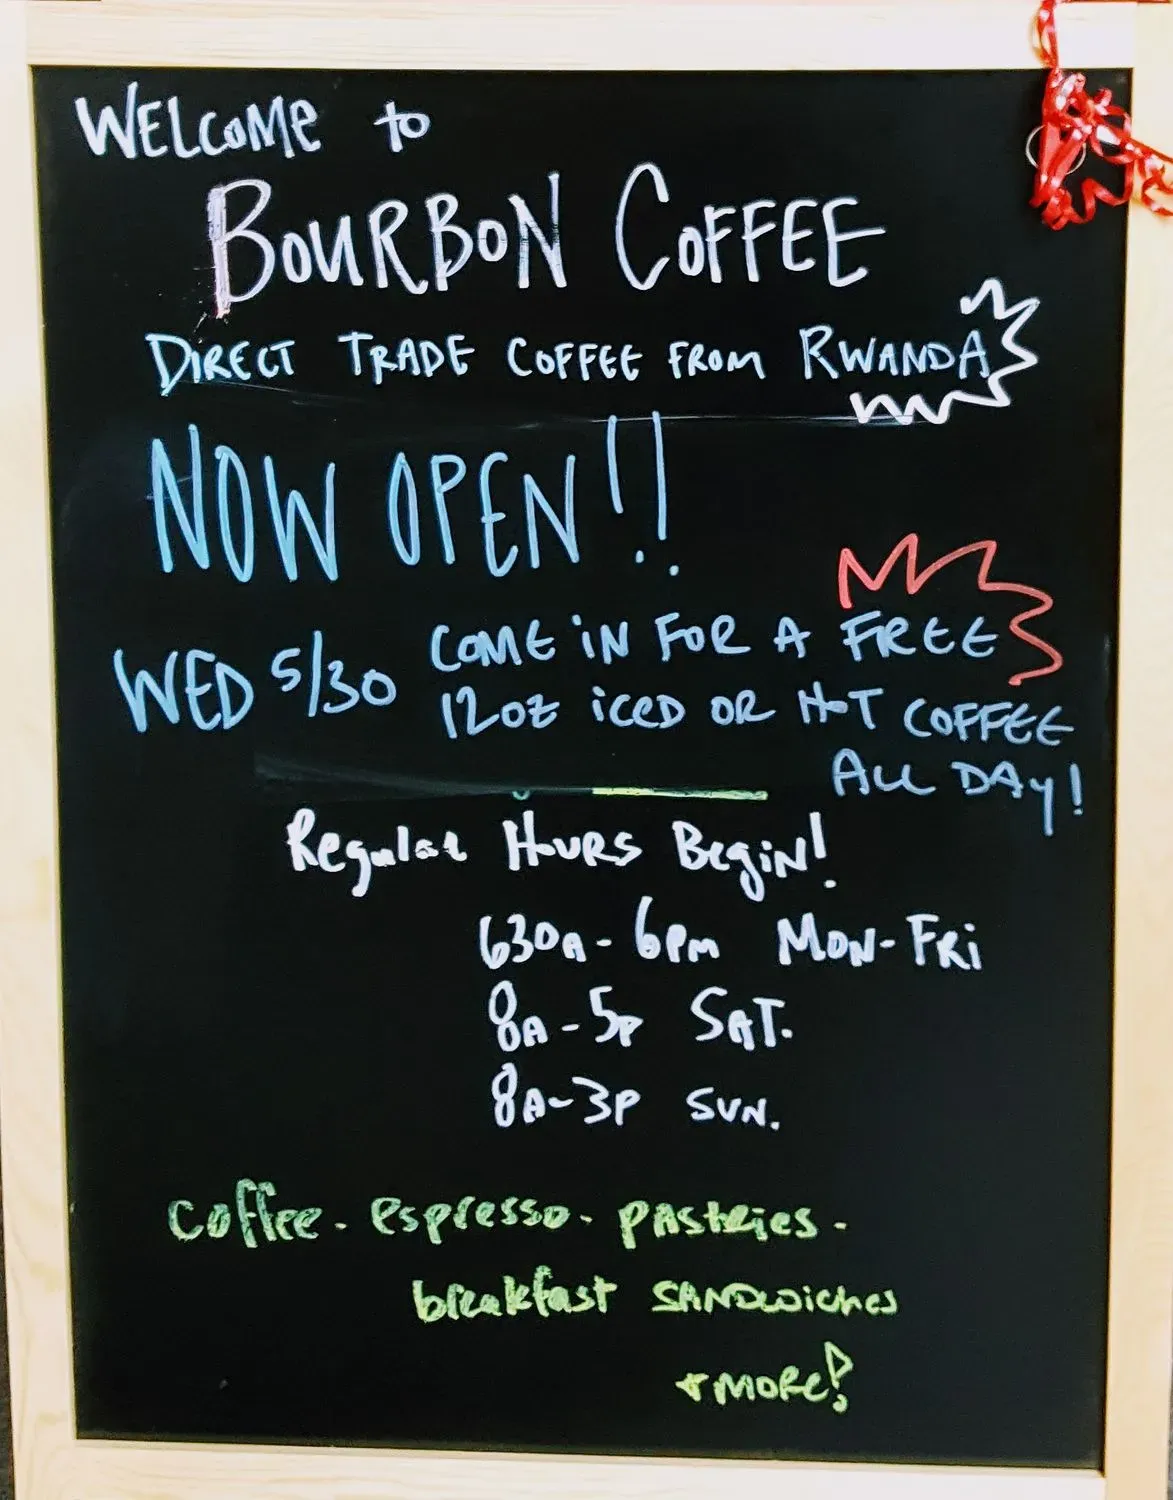 WELCOME to
BOURBON COFFEE
DIRECT TRADE COFFEE FROM RWANDA
NOW OPEN!!
WED 5/30 COME IN FOR A FREE
12oz ICED OR HOT COFFEE
ALL DAY!
Regular Hours Begin!
630A - 6PM MON-FRI
8A - 5P SAT.
8A - 3P SUN.
coffee - espresso - pastries -
breakfast SANDwiches
+ MORE!